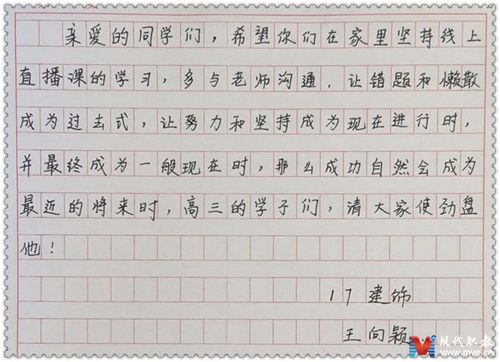 亲爱的同学们，希望你们在家里坚持线上
直播课的学习，多与老师沟通，让错题和懒散
成为过去式，让努力和坚持成为现在进行时，
并最终成为一般现在时，那么成功自然会成为
最近的将来时，高三的学子们，请大家使劲盘
他！
17建饰
王向颖
现代职教
www.mve.cn